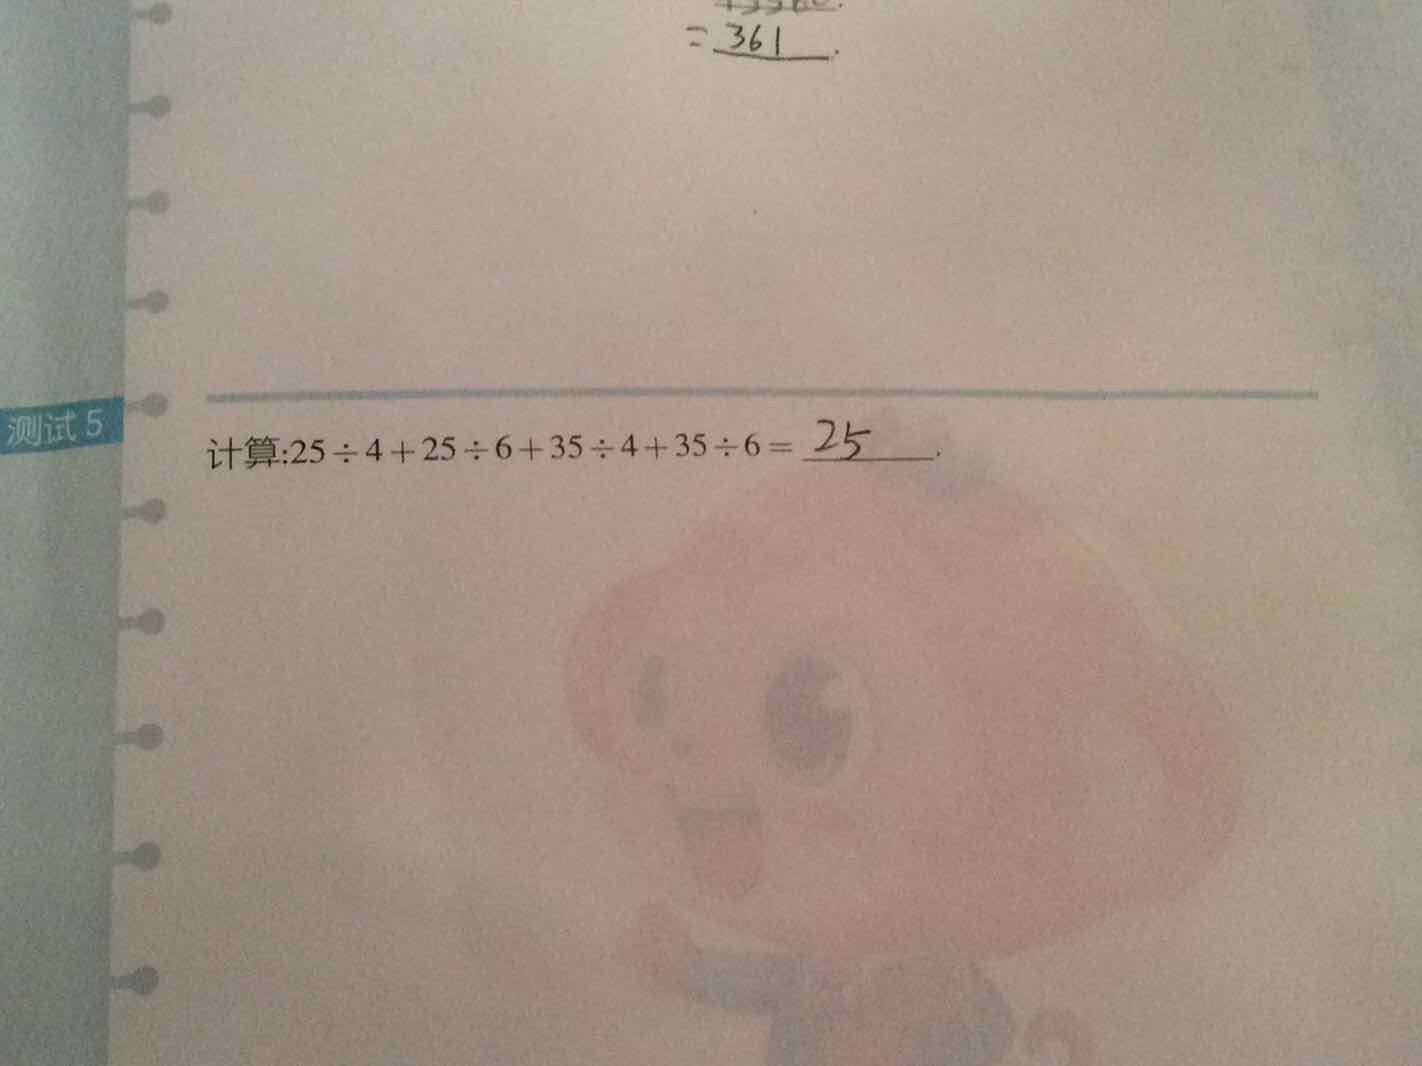 = 361.
测试5
计算:25÷4+25÷6+35÷4+35÷6= 25.